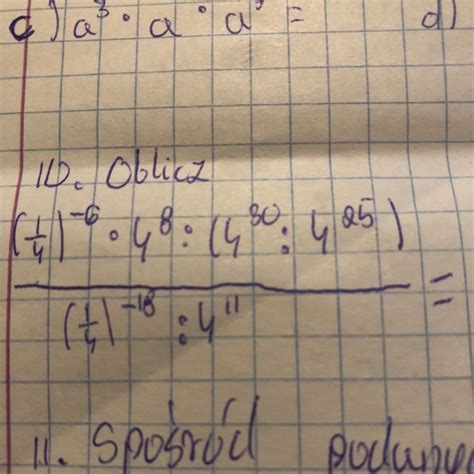 c) a³ · a · a⁹ = d)
10. Oblicz
(1/4)⁻⁶ · 4⁸ : (4³⁰ : 4²⁵)
/ (1/4)⁻¹⁸ : 4¹¹ =
11. Spośród